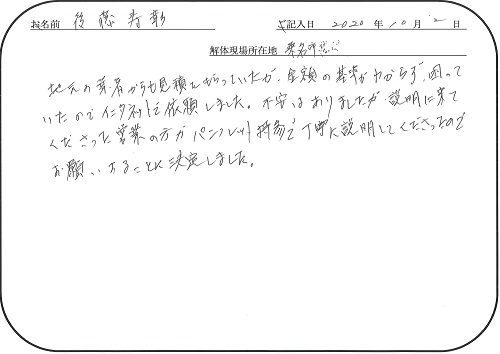 お名前 後藤寿彰 ご記入日 2020年10月2日
解体現場所在地 桑名市
地元の業者からも見積もらっていたが、金額の基準がわからず、困って
いたのでインターネットで依頼しました。不安はありましたが説明に来て
くださった営業の方がパンフレット持参で丁寧に説明してくださったので
お願いすることに決定しました。